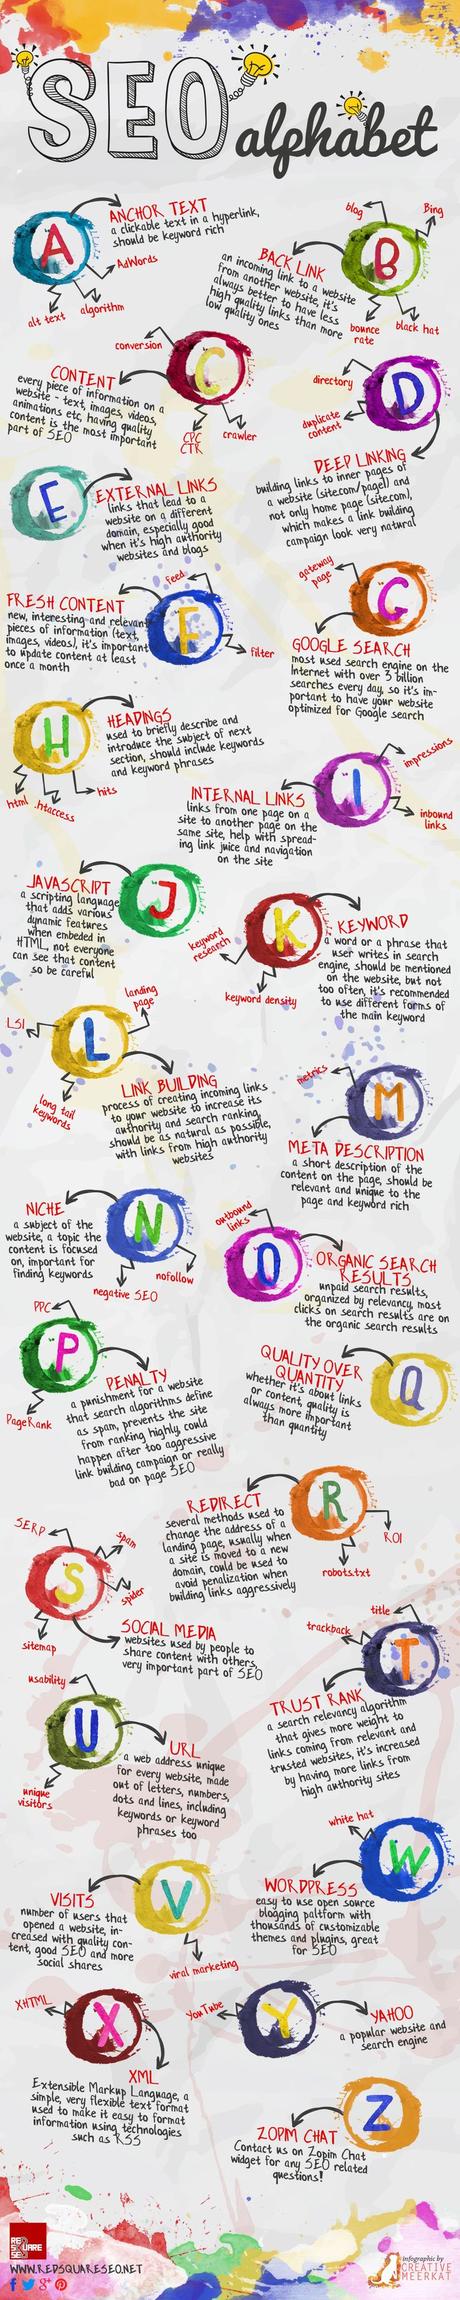 SEO alphabet
A
ANCHOR TEXT
a clickable text in a hyperlink,
should be keyword rich
AdWords
algorithm
alt text
blog
Bing
B
BACK LINK
an incoming link to a website
from another website, it's
always better to have less
high quality links than more
low quality ones
bounce
rate
black hat
conversion
C
CONTENT
every piece of information on a
website - text, images, videos,
animations etc, having quality
content is the most important
part of SEO
CPC
CTR
crawler
directory
D
duplicate
content
DEEP LINKING
building links to inner pages of
a website (site.com/page1) and
not only home page (site.com),
which makes a link building
campaign look very natural
E
EXTERNAL LINKS
links that lead to a
website on a different
domain, especially good
when it's high authority
websites and blogs
feed
F
FRESH CONTENT
new, interesting and relevant
pieces of information (text,
images, videos), it's important
to update content at least
once a month
filter
gateway
page
G
GOOGLE SEARCH
most used search engine on the
Internet with over 3 billion
searches every day, so it's im-
portant to have your website
optimized for Google search
H
HEADINGS
used to briefly describe and
introduce the subject of next
section, should include keywords
and keyword phrases
html
.htaccess
hits
impressions
I
INTERNAL LINKS
links from one page on a
site to another page on the
same site, help with spread-
ing link juice and navigation
on the site
inbound
links
J
JAVASCRIPT
a scripting language
that adds various
dynamic features
when embeded in
HTML, not everyone
can see that content
so be careful
K
KEYWORD
a word or a phrase that
user writes in search
engine, should be mentioned
on the website, but not
too often, it's recommended
to use different forms of
the main keyword
keyword
research
keyword density
landing
page
LSI
L
long tail
keywords
LINK BUILDING
process of creating incoming links
to your website to increase its
authority and search ranking,
should be as natural as possible,
with links from high authority
websites
metrics
M
META DESCRIPTION
a short description of the
content on the page, should be
relevant and unique to the
page and keyword rich
N
NICHE
a subject of the
website, a topic the
content is focused
on, important for
finding keywords
nofollow
negative SEO
outbound
links
O
ORGANIC SEARCH
RESULTS
unpaid search results,
organized by relevancy, most
clicks on search results are on
the organic search results
PPC
P
PageRank
PENALTY
a punishment for a website
that search algorithms define
as spam, prevents the site
from ranking highly, could
happen after too aggressive
link building campaign or really
bad on page SEO
Q
QUALITY OVER
QUANTITY
whether it's about links
or content, quality is
always more important
than quantity
R
REDIRECT
several methods used to
change the address of a
landing page, usually when
a site is moved to a new
domain, could be used to
avoid penalization when
building links aggressively
ROI
robots.txt
SERP
spam
S
spider
sitemap
SOCIAL MEDIA
websites used by people to
share content with others,
very important part of SEO
title
trackback
T
TRUST RANK
a search relevancy algorithm
that gives more weight to
links coming from relevant and
trusted websites, it's increased
by having more links from
high authority sites
usability
U
unique
visitors
URL
a web address unique
for every website, made
out of letters, numbers,
dots and lines, including
keywords or keyword
phrases too
white hat
W
WORDPRESS
easy to use open source
blogging paltform with
thousands of customizable
themes and plugins, great
for SEO
V
VISITS
number of users that
opened a website, in-
creased with quality con-
tent, good SEO and more
social shares
viral marketing
XHTML
X
XML
Extensible Markup Language, a
simple, very flexible text format
used to make it easy to format
information using technologies
such as RSS
YouTube
Y
YAHOO
a popular website and
search engine
Z
ZOPIM CHAT
Contact us on Zopim Chat
widget for any SEO related
questions!
RED
SQUARE
SEO
WWW.REDSQUARESEO.NET
infographic by
CREATIVE
MEERKAT